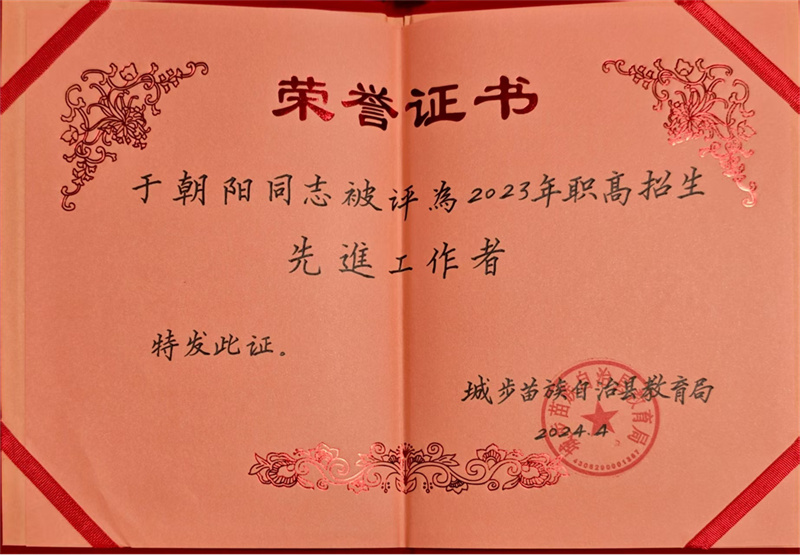 荣誉证书
于朝阳同志被评為2023年职高招生
先進工作者
特发此证。
城步苗族自治县教育局
2024.4
城步苗族自治县教育局